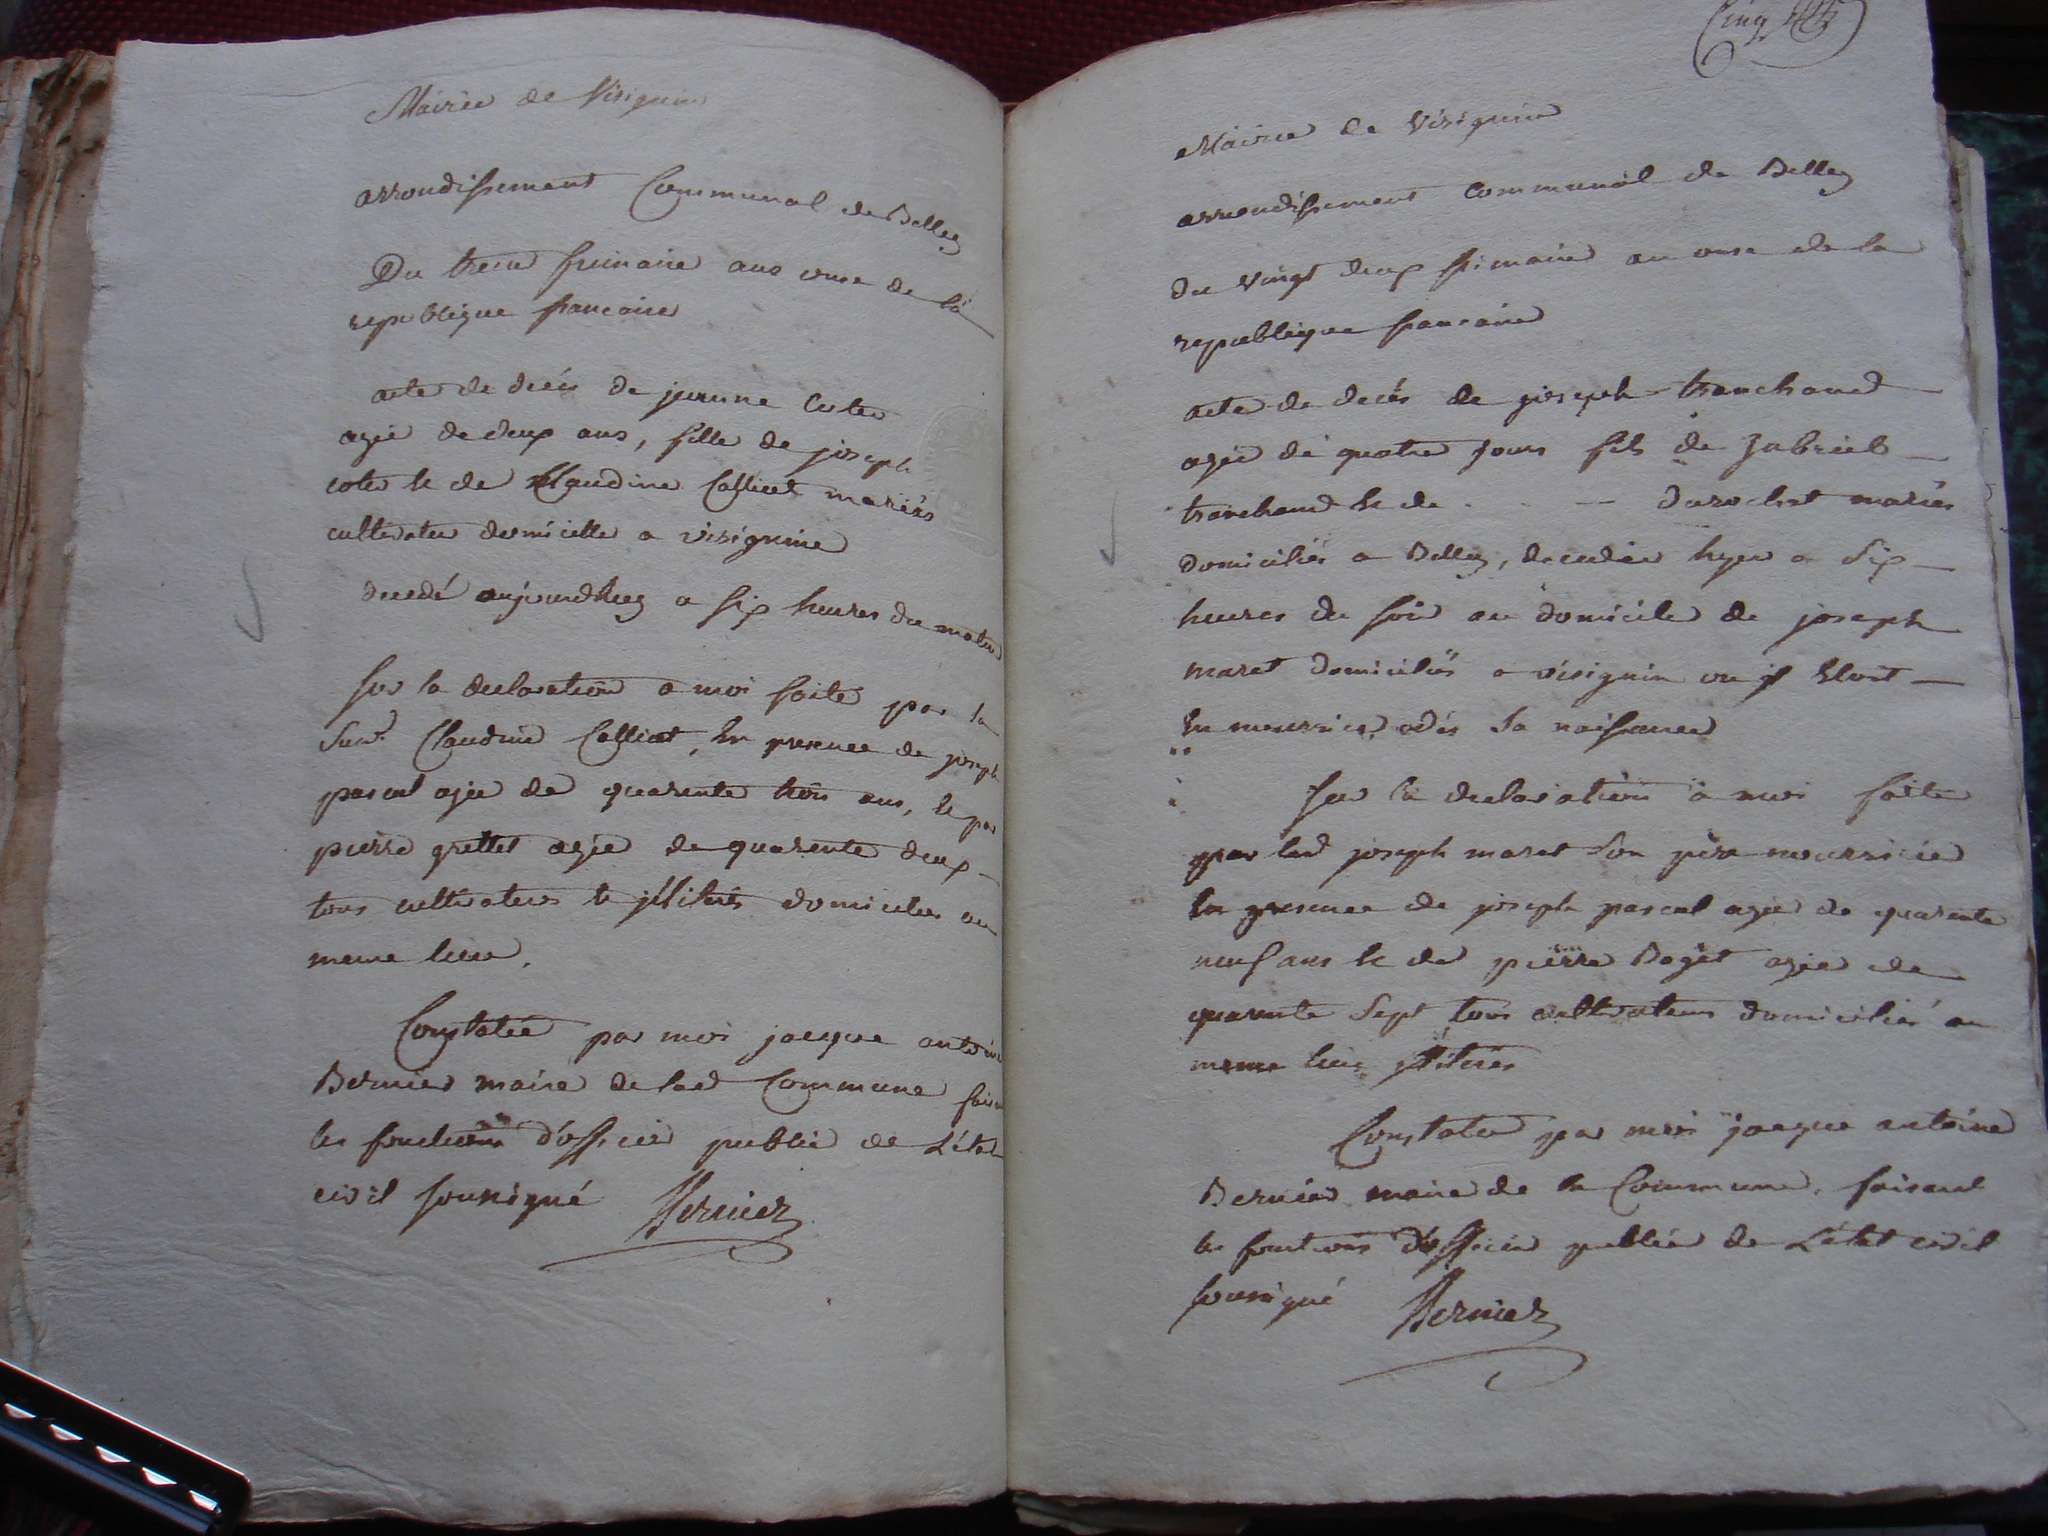 Mairie de Visignin
arrondissement Communal de Belley
Du treize frimaire ans onze de la
republique francaise
acte de décés de jeanne Coter
agée de deux ans, fille de joseph
coter & de Claudine Callicet mariés
cultivateur domicille a visignin
decedé aujourdhuy a six heures du matin
sur la declaration a moi faite par la
Claudine Callicet, En presence de joseph
pascal agée de quarente trois ans, & par
pierre grettet agée de quarente deux
tous cultivateurs & jlliterés domicilies au
meme lieu.
Constatée par moi jacque antoine
Bernier maire de lad Commune faisant
les fonctions d'officier publie de L'état
civil sousigné Bernier
Cinq
Mairie de Visignin
arrondissement communal de Belley
du vingt deux frimaire an onze de la
republique francaise
acte de decés de joseph tranchand
agée de quatre jours fils de gabriel
tranchand & de - - durochat mariés
domiciliés a Belley, decedée hyer a six
heures du soir au domicile de joseph
maret domiciliés a visignin ou jl Etoit
En nourrice, dès sa naissance
sur la declaration a moi faite
par led joseph maret son père nourricier
En presence de joseph pascal agée de quarente
neuf ans & de pierre Boget agée de
quarente sept tous cultivateurs domiciliés au
meme lieu jlliterés
Constatée par moi jacque antoine
Bernier maire de la Commune, faisant
les fonctions d'officier publié de L'état civil
sousigné Bernier